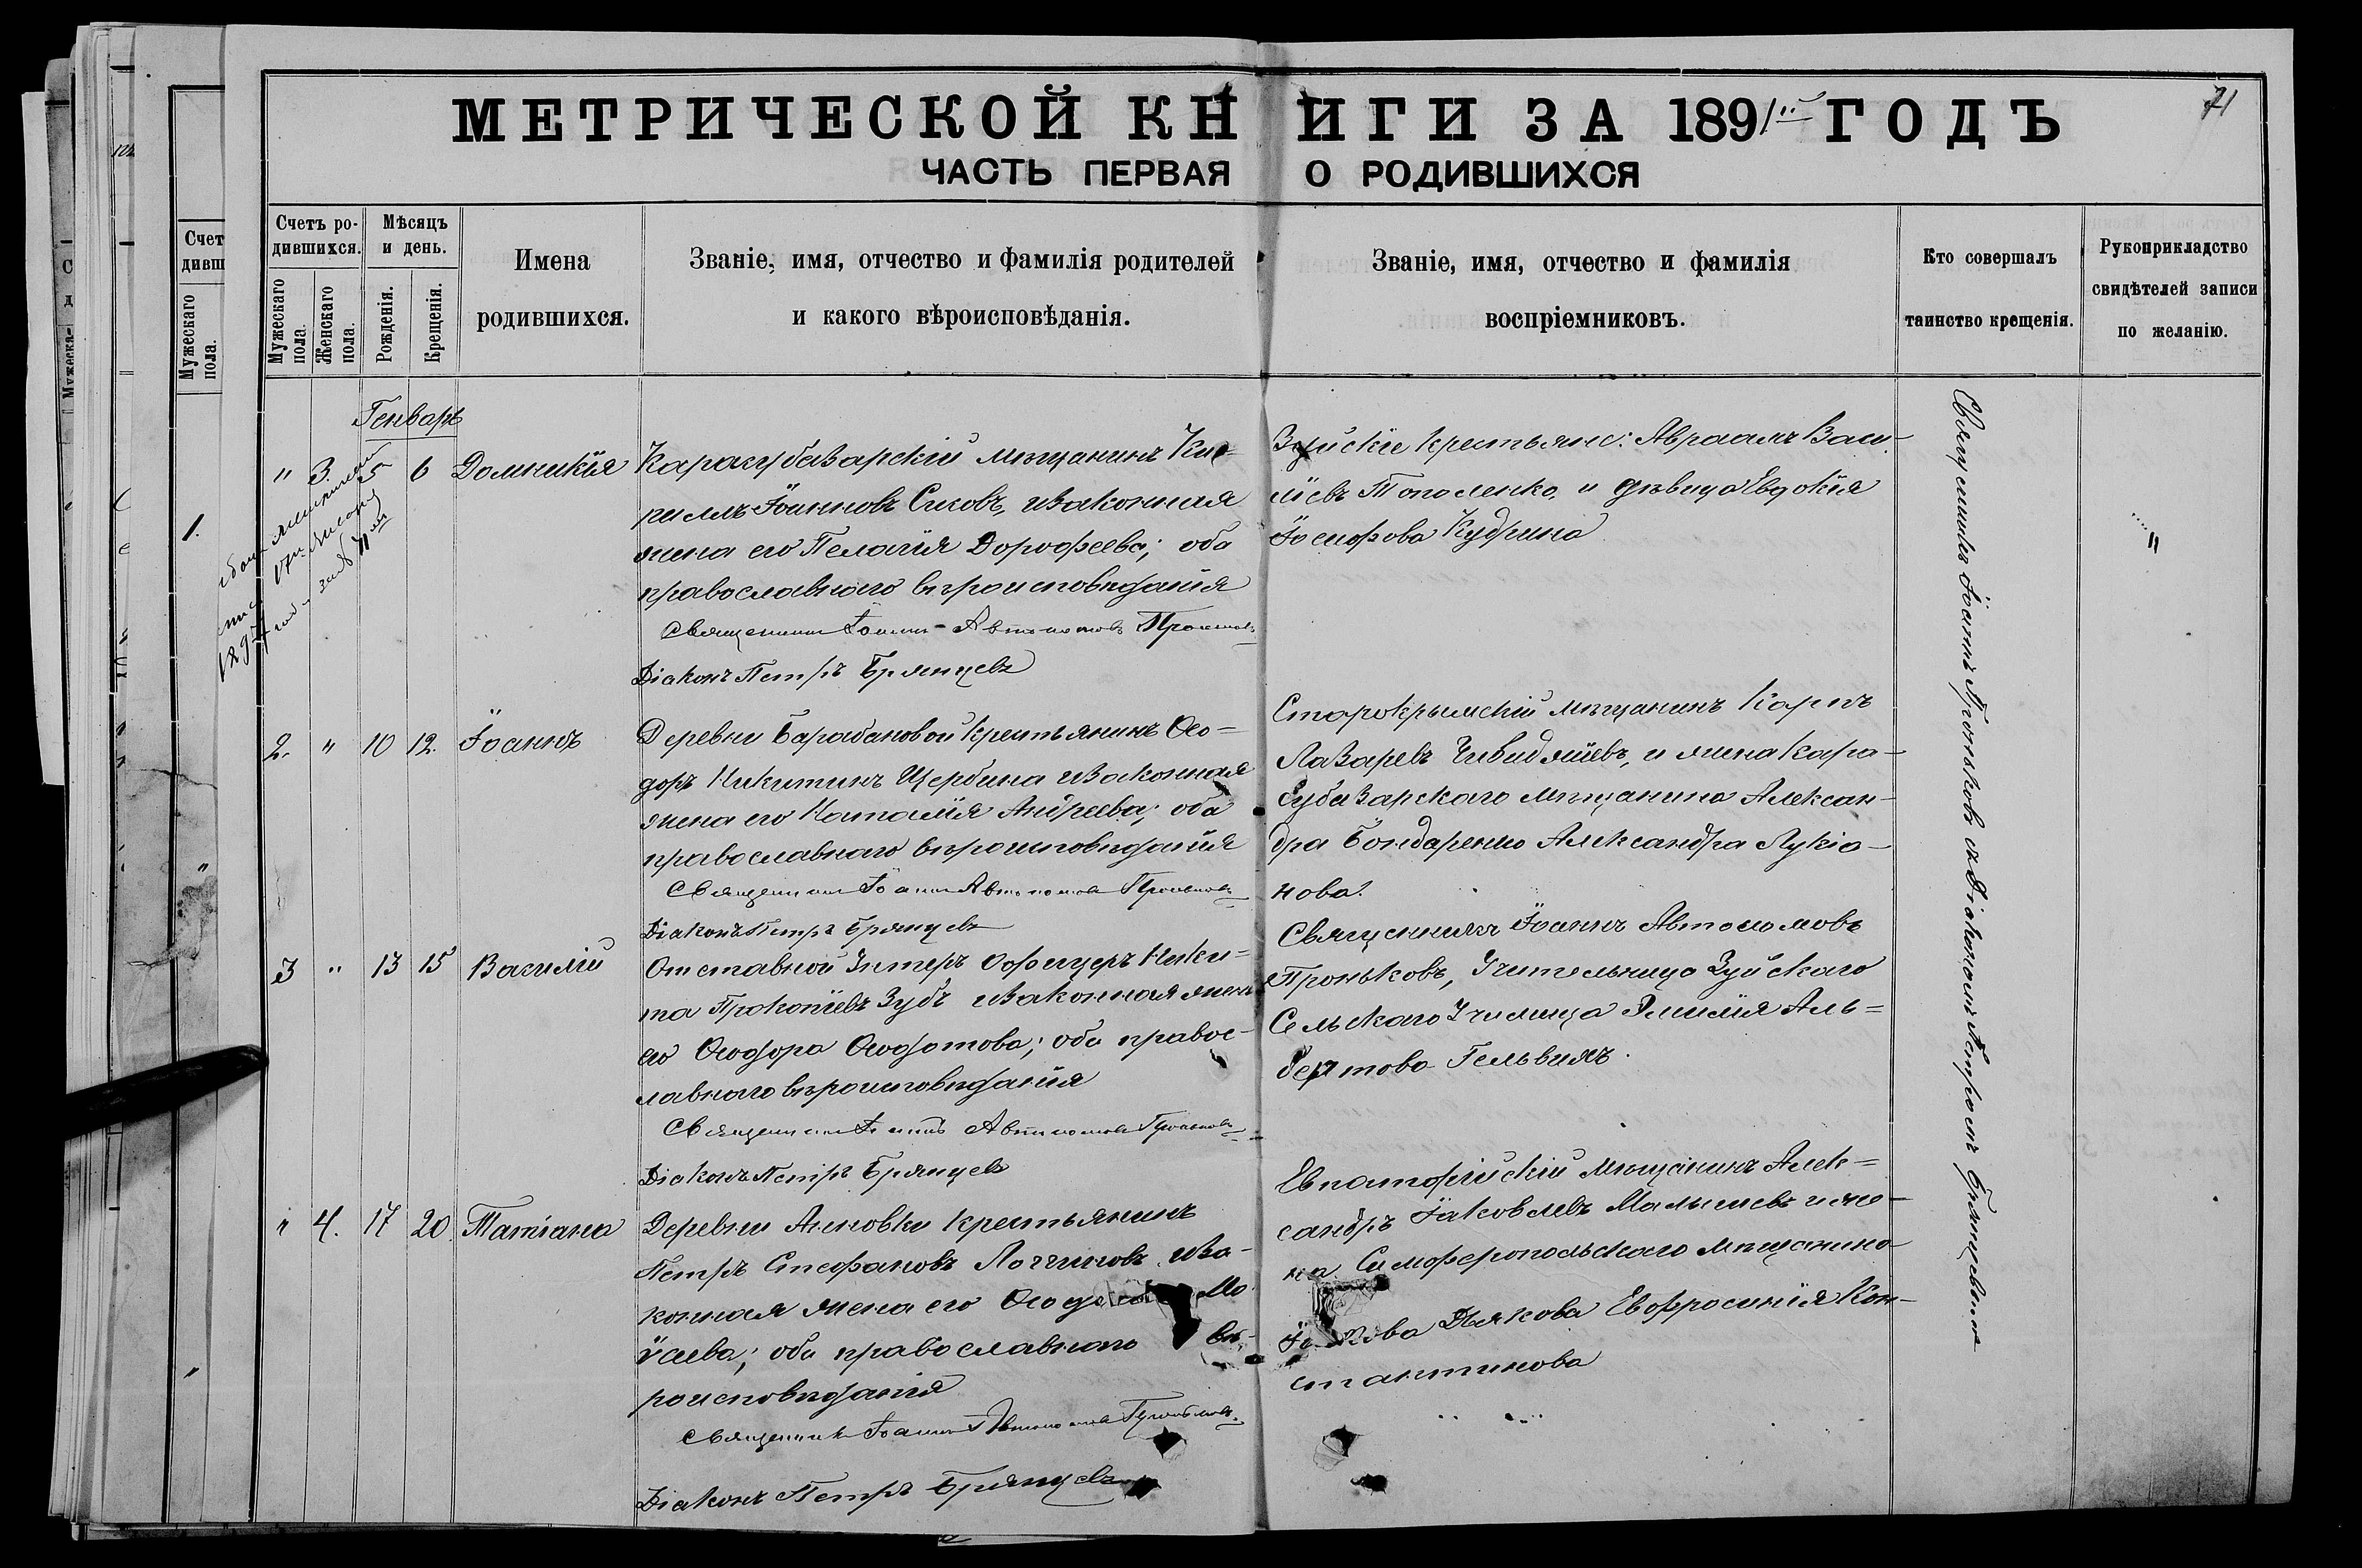 МЕТРИЧЕСКОЙ КНИГИ ЗА 1891ый ГОДЪ
71
ЧАСТЬ ПЕРВАЯ О РОДИВШИХСЯ
Счетъ ро-
дившихся.
Мужескаго
пола.
Женскаго
пола.
Мѣсяцъ
и день.
Рожденія.
Крещенія.
Имена
родившихся.
Званіе, имя, отчество и фамилія родителей
и какого вѣроисповѣданія.
Званіе, имя, отчество и фамилія
воспріемниковъ.
Кто совершалъ
таинство крещенія.
Рукоприкладство
свидѣтелей записи
по желанію.
Генварь
" 3. 5 6 Домникія
Карасубазарскій мѣщанинъ Ки-
риллъ Іоанновъ Сиковъ, и законная
жена его Пелагія Дорофеева; оба
православнаго вѣроисповѣданія
Священникъ Іоаннъ Автономовъ Проньковъ
Діаконъ Петръ Брянцевъ
Зуйскіе крестьяне: Авраамъ Васи-
ліевъ Тополенко, и дѣвица Евдокія
Іосифова Кудрина
"
2. " 10 12. Іоаннъ
Деревни Барабановой крестьянинъ Ѳео-
доръ Никитинъ Щербина и законная
жена его Наталія Андреева; оба
православнаго вѣроисповѣданія
Священникъ Іоаннъ Автономовъ Проньковъ
Діаконъ Петръ Брянцевъ
Старокрымскій мѣщанинъ Карпъ
Лазаревъ, и жена Кара-
субазарскаго мѣщанина Алексан-
дра Бондаренко Александра Лукіа-
нова.
3 " 13 15 Василій
Отставной Унтеръ Офицеръ Ники-
та Прокопіевъ Зубъ и законная жена
его Ѳеодора Ѳеодотова; оба правос-
лавнаго вѣроисповѣданія
Священникъ Іоаннъ Автономовъ Проньковъ
Діаконъ Петръ Брянцевъ
Священникъ Іоаннъ Автономовъ
Проньковъ, Учительница Зуйскаго
Сельскаго Училища Эмилія Аль-
бертова Гельвихъ.
" 4. 17 20. Татіана
Деревни Анновки крестьянинъ
Петръ Стефановъ Логгиновъ, и за-
конная жена его Мо-
ѵсеева; оба православнаго вѣ-
роисповѣданія
Священникъ Іоаннъ Автономовъ Проньковъ.
Діаконъ Петръ Брянцевъ
Евпаторійскій мѣщанинъ Алек-
сандръ Іаковлевъ Малышевъ и же-
на Симферопольскаго мѣщанина
Дьякова Евфросинія Кон-
стантинова
Священникъ Іоаннъ Проньковъ съ Діакономъ Петромъ Брянцевымъ